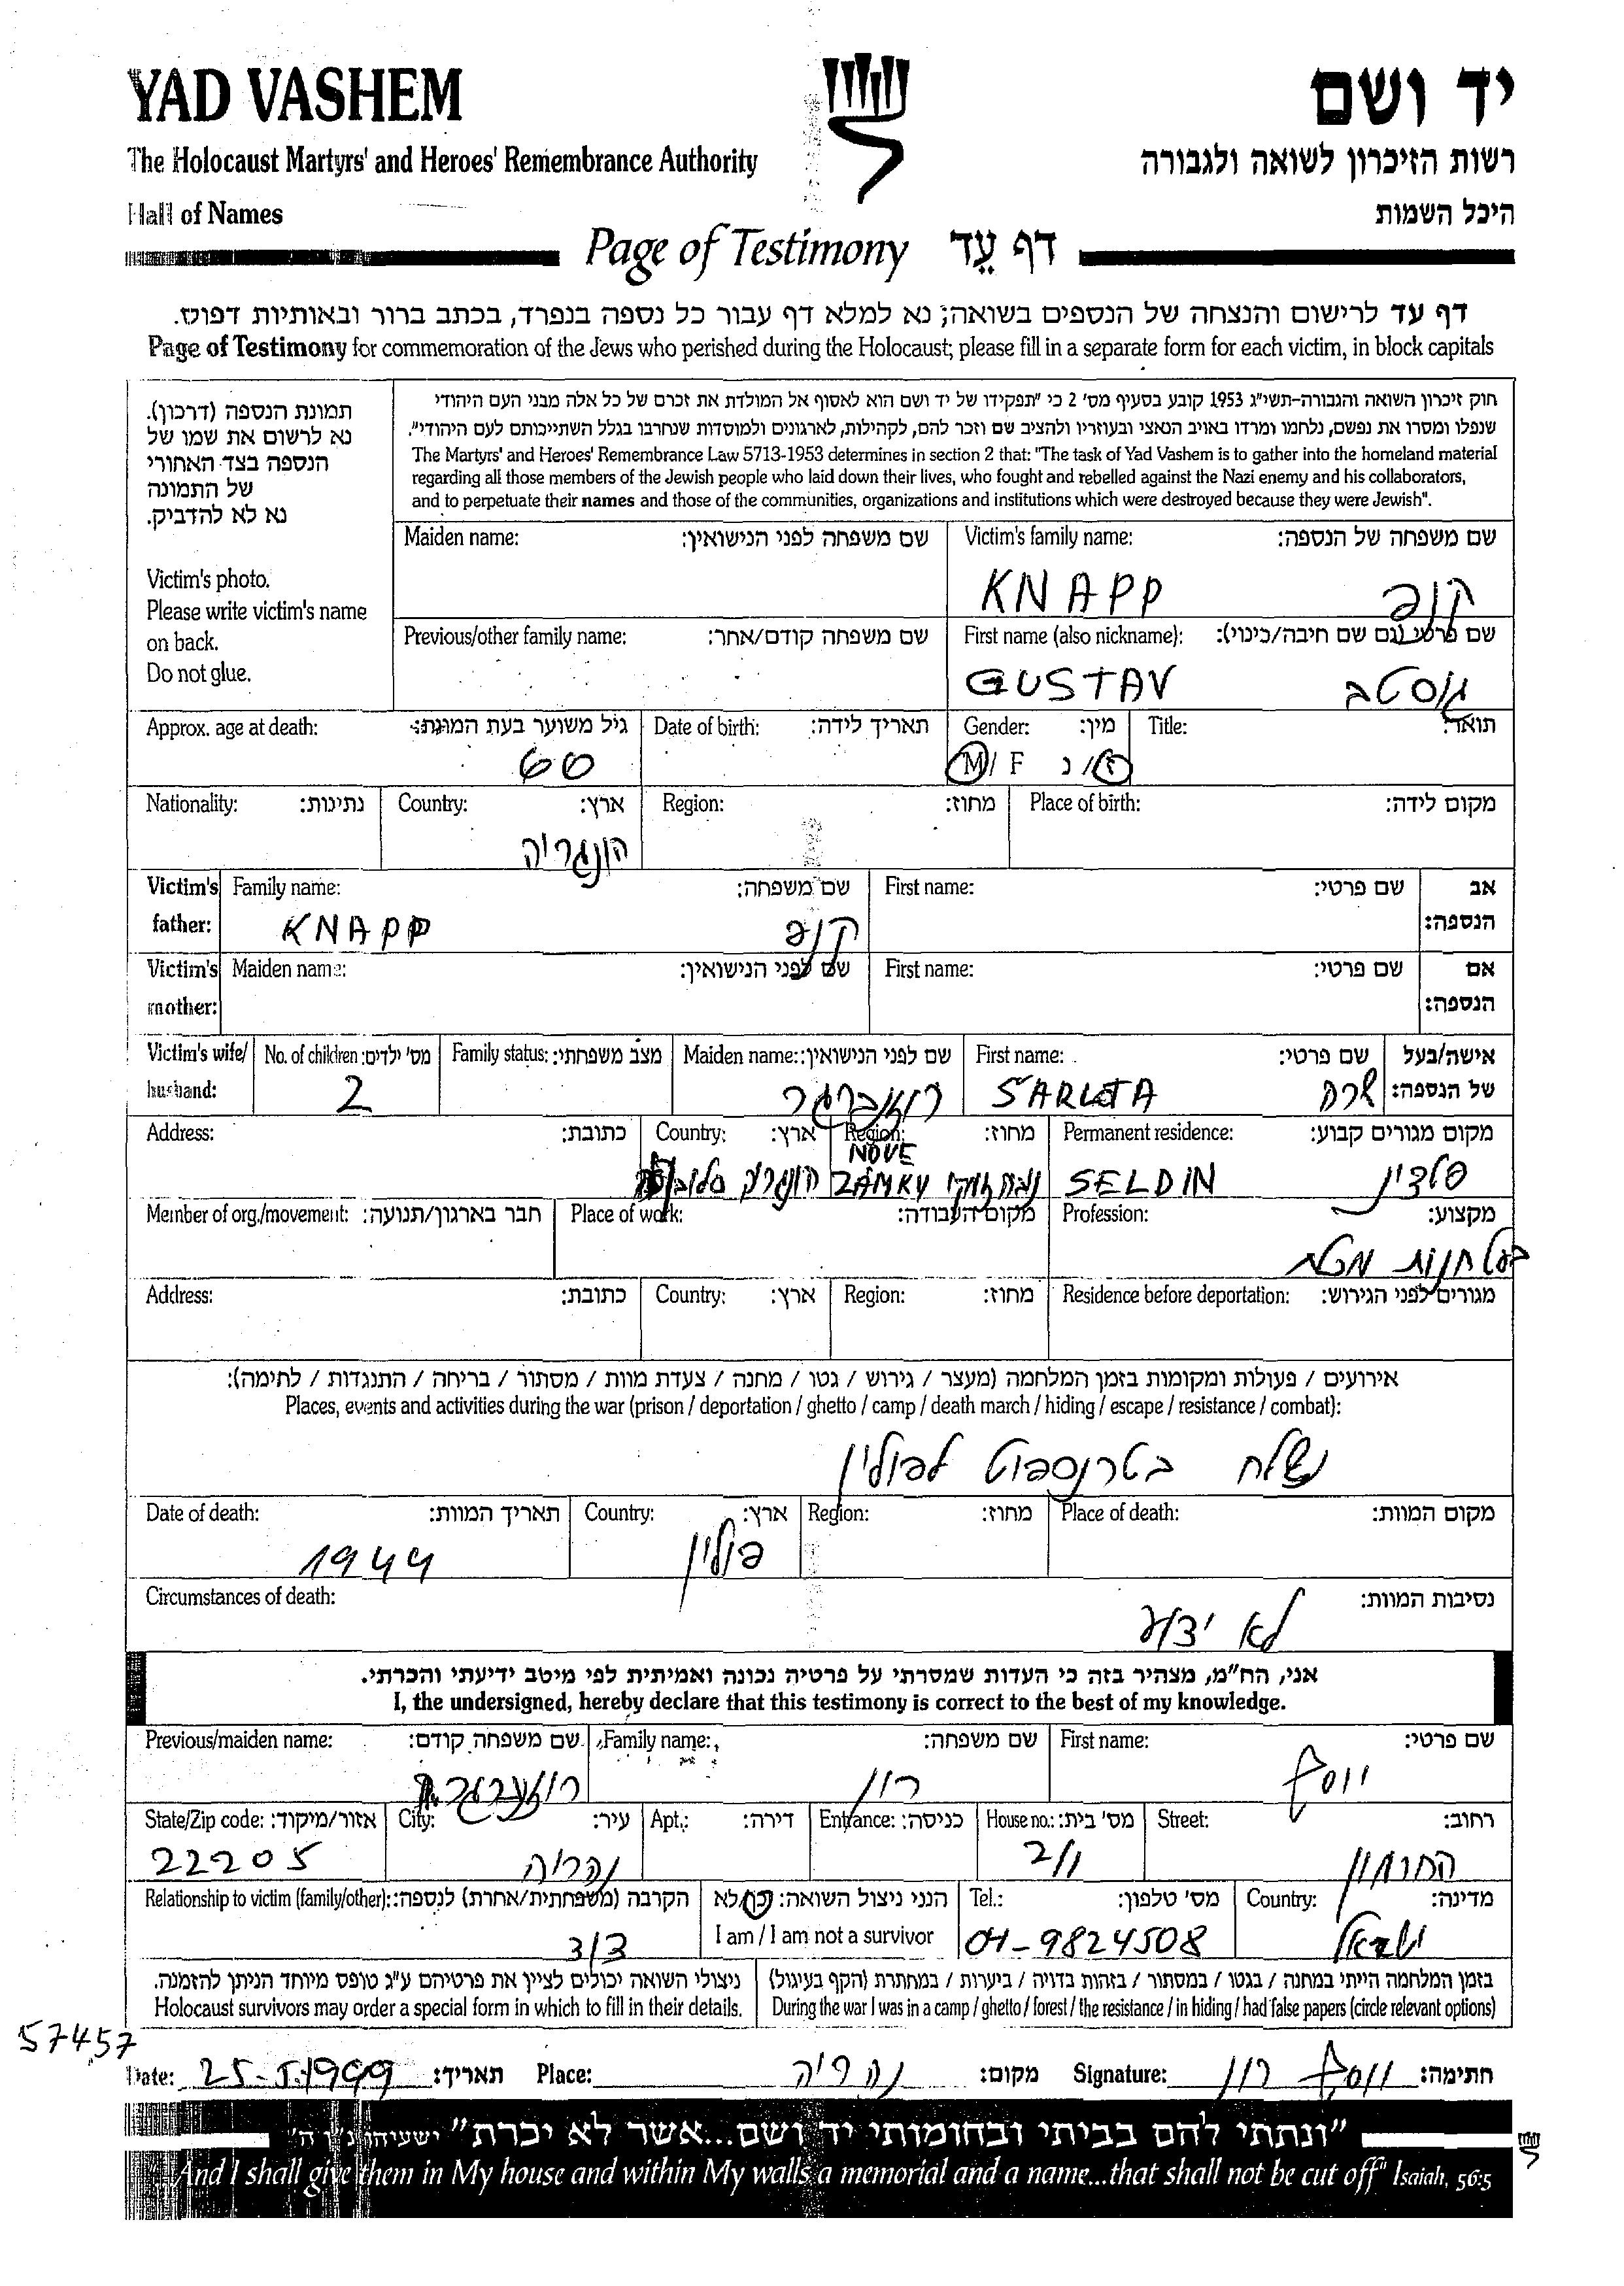 YAD VASHEM יד ושם
The Holocaust Martyrs' and Heroes' Remembrance Authority רשות הזיכרון לשואה ולגבורה
Hall of Names היכל השמות
Page of Testimony דף עֵד
דף עד לרישום והנצחה של הנספים בשואה; נא למלא דף עבור כל נספה בנפרד, בכתב ברור ובאותיות דפוס.
Page of Testimony for commemoration of the Jews who perished during the Holocaust; please fill in a separate form for each victim, in block capitals
תמונת הנספה (דרכון).
נא לרשום את שמו של
הנספה בצד האחורי
של התמונה
נא לא להדביק.
Victim's photo.
Please write victim's name
on back.
Do not glue.
חוק זיכרון השואה והגבורה-תשי"ג 1953 קובע בסעיף מס' 2 כי "תפקידו של יד ושם הוא לאסוף אל המולדת את זכרם של כל אלה מבני העם היהודי
שנפלו ומסרו את נפשם, נלחמו ומרדו באויב הנאצי ובעוזריו ולהציב שם וזכר להם, לקהילות, לארגונים ולמוסדות שנחרבו בגלל השתייכותם לעם היהודי".
The Martyrs' and Heroes' Remembrance Law 5713-1953 determines in section 2 that: "The task of Yad Vashem is to gather into the homeland material
regarding all those members of the Jewish people who laid down their lives, who fought and rebelled against the Nazi enemy and his collaborators,
and to perpetuate their names and those of the communities, organizations and institutions which were destroyed because they were Jewish".
Maiden name: שם משפחה לפני הנישואין: Victim's family name: שם משפחה של הנספה:
KNAPP קנפ
Previous/other family name: שם משפחה קודם/אחר: First name (also nickname): שם פרטי (גם שם חיבה/כינוי):
GUSTAV גוסטב
Approx. age at death: גיל משוער בעת המוות: Date of birth: תאריך לידה: Gender: מין: Title: תואר:
60 M / F ז / נ
Nationality: נתינות: Country: ארץ: Region: מחוז: Place of birth: מקום לידה:
הונגריה
Victim's father: Family name: שם משפחה: First name: שם פרטי: אב הנספה:
KNAPP קנפ
Victim's mother: Maiden name: שם לפני הנישואין: First name: שם פרטי: אם הנספה:
Victim's wife/ husband: No. of children: מס' ילדים: Family status: מצב משפחתי: Maiden name: שם לפני הנישואין: First name: שם פרטי: אישה/בעל של הנספה:
2 רוזנברגר SARLOTA שרה
Address: כתובת: Country: ארץ: Region: מחוז: Permanent residence: מקום מגורים קבוע:
NOVE
הונגריה ZAMKY SELDIN סלדין
Member of org./movement: חבר בארגון/תנועה: Place of work: מקום העבודה: Profession: מקצוע:
בעל חנות
Address: כתובת: Country: ארץ: Region: מחוז: Residence before deportation: מגורים לפני הגירוש:
אירועים / פעולות ומקומות בזמן המלחמה (מעצר / גירוש / גטו / מחנה / צעדת מוות / מסתור / בריחה / התנגדות / לחימה):
Places, events and activities during the war (prison / deportation / ghetto / camp / death march / hiding / escape / resistance / combat):
נשלח בטרנספוט לפולין
Date of death: תאריך המוות: Country: ארץ: Region: מחוז: Place of death: מקום המוות:
1944 פולין
Circumstances of death: נסיבות המוות:
לא ידוע
אני, הח"מ, מצהיר בזה כי העדות שמסרתי על פרטיה נכונה ואמיתית לפי מיטב ידיעתי והכרתי.
I, the undersigned, hereby declare that this testimony is correct to the best of my knowledge.
Previous/maiden name: שם משפחה קודם: Family name: שם משפחה: First name: שם פרטי:
רוזנברגר רון יוסף
State/Zip code: אזור/מיקוד: City: עיר: Apt.: דירה: Entrance: כניסה: House no.: מס' בית: Street: רחוב:
22205 נהריה 2/1 החרמון
Relationship to victim (family/other): הקרבה (משפחתית/אחרת) לנספה: הנני ניצול השואה: כן/לא Tel.: מס' טלפון: Country: מדינה:
דוד I am / I am not a survivor 04-9824508 ישראל
ניצולי השואה יכולים לציין את פרטיהם ע"ג טופס מיוחד הניתן להזמנה. בזמן המלחמה הייתי במחנה / בגטו / במסתור / בזהות בדויה / ביערות / במחתרת (הקף בעיגול)
Holocaust survivors may order a special form in which to fill in their details. During the war I was in a camp / ghetto / forest / the resistance / in hiding / had false papers (circle relevant options)
57457
Date: 25-5-1999 תאריך: Place: נהריה מקום: Signature: יוסף רון חתימה:
"ונתתי להם בביתי ובחומותי יד ושם...אשר לא יכרת" ישעיהו נ"ו ה'
And I shall give them in My house and within My walls a memorial and a name...that shall not be cut off" Isaiah, 56:5